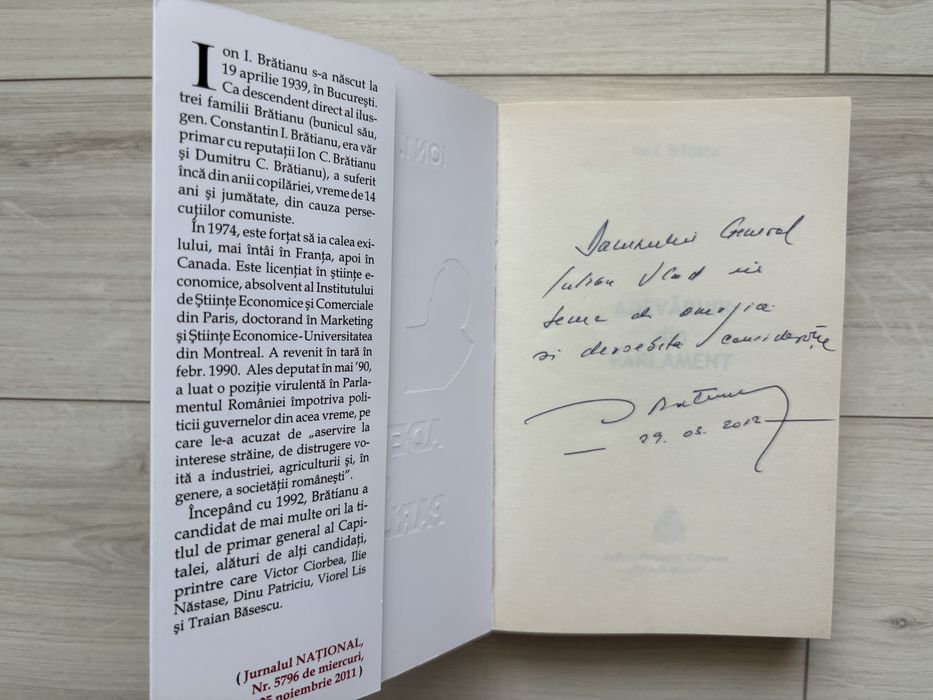 Ion I. Brătianu s-a născut la
19 aprilie 1939, în Bucureşti.
Ca descendent direct al ilus-
trei familii Brătianu (bunicul său,
gen. Constantin I. Brătianu, era văr
primar cu reputaţii Ion C. Brătianu
şi Dumitru C. Brătianu), a suferit
încă din anii copilăriei, vreme de 14
ani şi jumătate, din cauza perse-
cuţiilor comuniste.
În 1974, este forţat să ia calea exi-
lului, mai întâi în Franţa, apoi în
Canada. Este licenţiat în ştiinţe e-
conomice, absolvent al Institutului
de Ştiinţe Economice şi Comerciale
din Paris, doctorand în Marketing
şi Ştiinţe Economice-Universitatea
din Montreal. A revenit în tară în
febr. 1990. Ales deputat în mai '90,
a luat o poziţie virulentă în Parla-
mentul României împotriva poli-
ticii guvernelor din acea vreme, pe
care le-a acuzat de „aservire la
interese străine, de distrugere vo-
ită a industriei, agriculturii şi, în
genere, a societăţii româneşti".
Începând cu 1992, Brătianu a
candidat de mai multe ori la ti-
tlul de primar general al Capi-
talei, alături de alţi candidaţi,
printre care Victor Ciorbea, Ilie
Năstase, Dinu Patriciu, Viorel Lis
şi Traian Băsescu.
(Jurnalul NAŢIONAL,
Nr. 5796 de miercuri,
noiembrie 2011)
ION I.
ADE
PARL
Ion I. Brătianu
Domnului General
Iulian Vlad
semn de
si deosebita consideraţie
29. 03. 2012
ADEVĂRURI
din
PARLAMENT